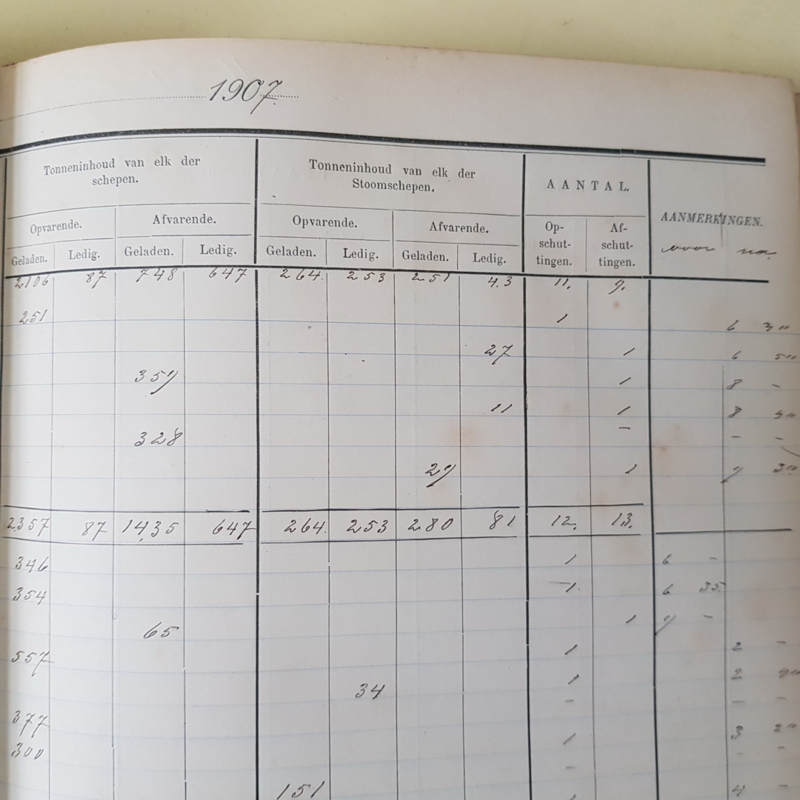 1907.
Tonneninhoud van elk der schepen. Tonneninhoud van elk der Stoomschepen. AANTAL. AANMERKINGEN.
Opvarende. Afvarende. Opvarende. Afvarende. Op-schut-tingen. Af-schut-tingen. voor na
Geladen. Ledig. Geladen. Ledig. Geladen. Ledig. Geladen. Ledig.
2106 87 748 647 264. 253 251 43 11. 9.
251 1 6
27 1 6
359 1 8 -
11 1 8
328 - - -
29 1 9
2357 87 1435 647 264. 253 280 81 12. 13.
346 1 6 -
354 1. 6 35
65 1 9 -
557 1 2 -
34 1 2
- - -
377 1 3
300 - - -
151 1 4 -